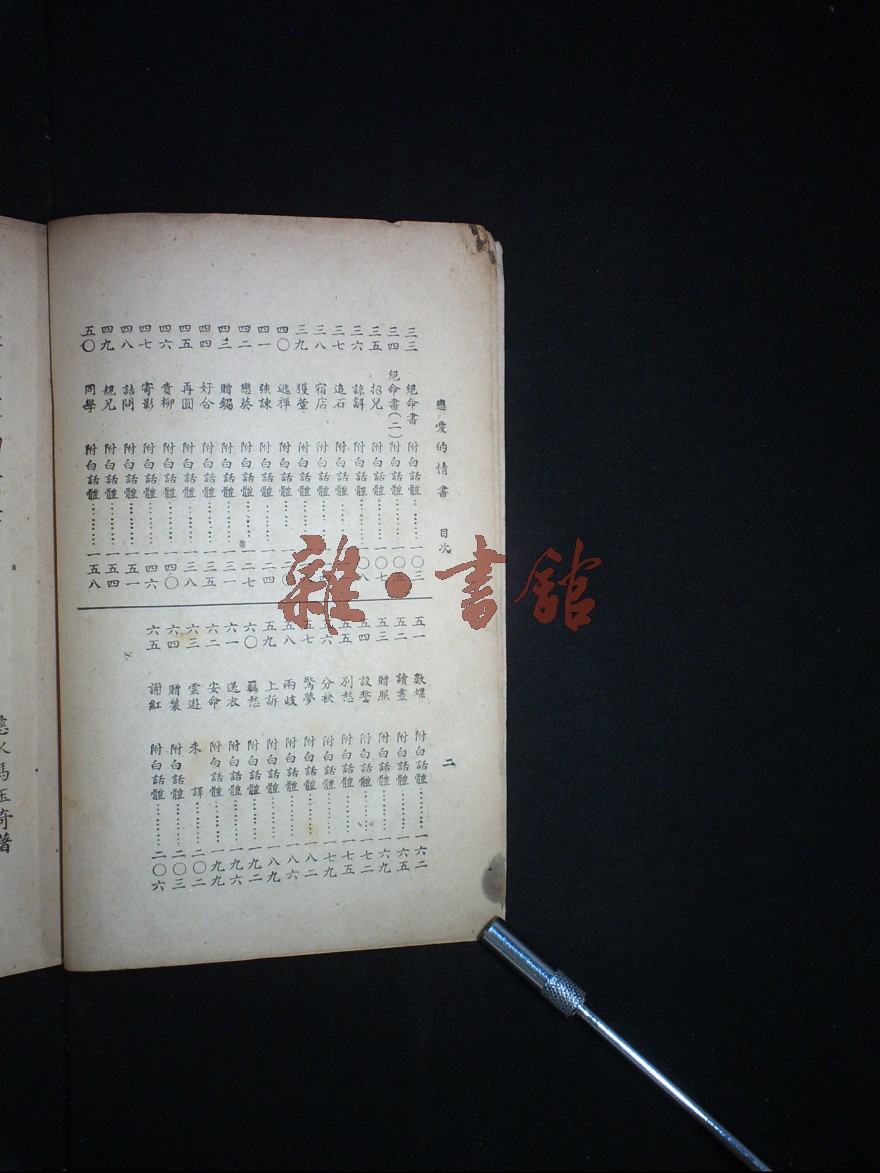 戀愛的情書 目次
二
三三 絕命書 附白話體……一〇三
三四 絕命書(二) 附白話體……一〇五
三五 招兄 附白話體……一〇七
三六 諒解 附白話體……〇八
三七 追石 附白話體……
三八 宿店 附白話體……
三九 獲萱 附白話體……
四〇 逃禪 附白話體……
四一 強諫 附白話體……一二四
四二 戀葵 附白話體……一二七
四三 贈鐲 附白話體……一三一
四四 好合 附白話體……一三五
四五 再圓 附白話體……一三八
四六 責柳 附白話體……一四〇
四七 寄影 附白話體……一四六
四八 詰問 附白話體……一五一
四九 規兄 附白話體……一五四
五〇 同學 附白話體……一五八
五一 數螺 附白話體……一六二
五二 讀畫 附白話體……一六五
五三 贈照 附白話體……一六九
五四 設誓 附白話體……一七二
五五 別愁 附白話體……一七五
五六 分袂 附白話體……一七九
五七 驚夢 附白話體……一八二
五八 兩歧 附白話體……一八六
五九 上訴 附白話體……一八九
六〇 羈愁 附白話體……一九二
六一 送衣 附白話體……一九六
六二 安命 附白話體……一九九
六三 雲遊 未譯……二〇二
六四 贈製 附白話體……二〇三
六五 謝紅 附白話體……二〇六
馮玉奇著
雜·書館